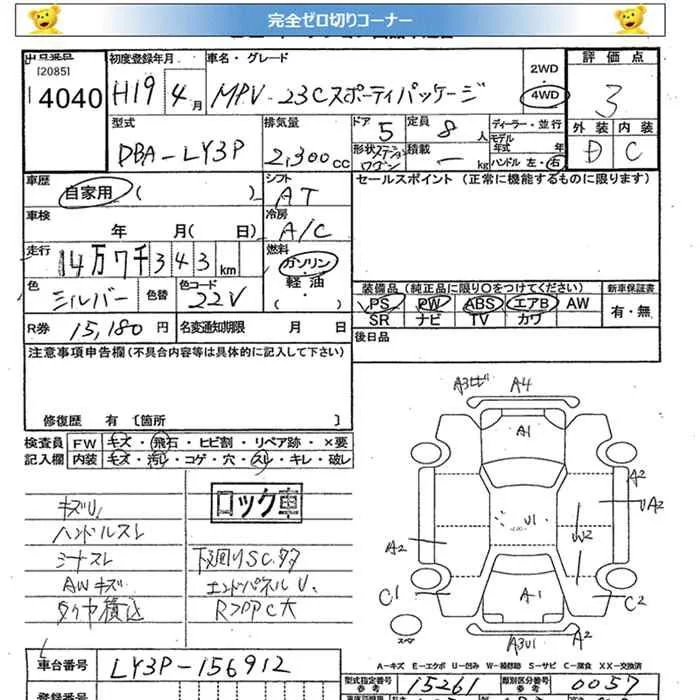 完全ゼロ切りコーナー
出品番号 初度登録年月 車名・グレード 2WD 評価点
[2085]
4040 H19 4月 MPV-23Cスポーティパッケージ 4WD 3
型式 排気量 ドア 5 定員 8 人 ディーラー・並行 外装 内装
モデル年式 年
DBA-LY3P 2,300cc 形状 ステーションワゴン 積載 ー kg ハンドル 左・右 D C
車歴 シフト セールスポイント (正常に機能するものに限ります)
自家用( ) AT
車検 冷房
年 月( 日) A/C
走行 燃料
14万7千343km ガソリン
色 色替 色コード 軽油 装備品 (純正品に限り○をつけてください) 新車保証書
シルバー 22V ( ) PS PW ABS エアB AW 有・無
SR ナビ TV カワ
R券 15,180円 名変通知期限 月 日 後日品
注意事項申告欄(不具合内容等は具体的に記入して下さい)
修復歴 有 〔箇所 〕
検査員 FW キズ・飛石・ヒビ割・リペア跡・×要
記入欄 内装 キズ・汚レ・コゲ・穴・スレ・キレ・破レ
ロック車
キズU
ハンドルスレ
シートスレ 下廻りSC.タタ
AWキズ エンドパネルU.
タイヤ積込 RフロアC大
A4
A1
A2
UA2
U1
A2
C1
A-1
C2
スペア
A3U1
A2
A-キズ E-エクボ U-凹み W-補修跡 S-サビ C-腐食 XX-交換済
車台番号 LY3P-156912 型式指定番号 参考 15261 類別区分番号 参考 0057
登録番号